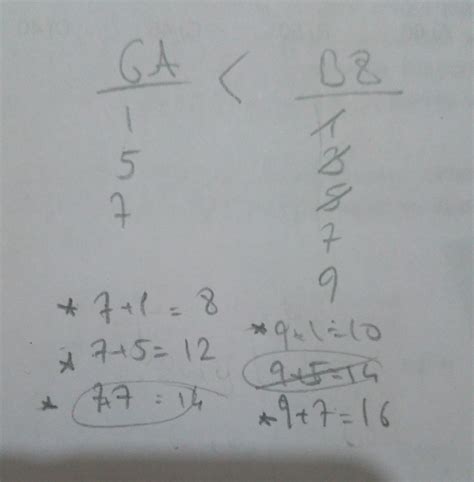 GA < BZ
1 1
5 3
7 5
7
9
* 7+1 = 8
* 9+1=10
* 7+5 = 12
9+5=14
* 7+7 = 14
* 9+7=16